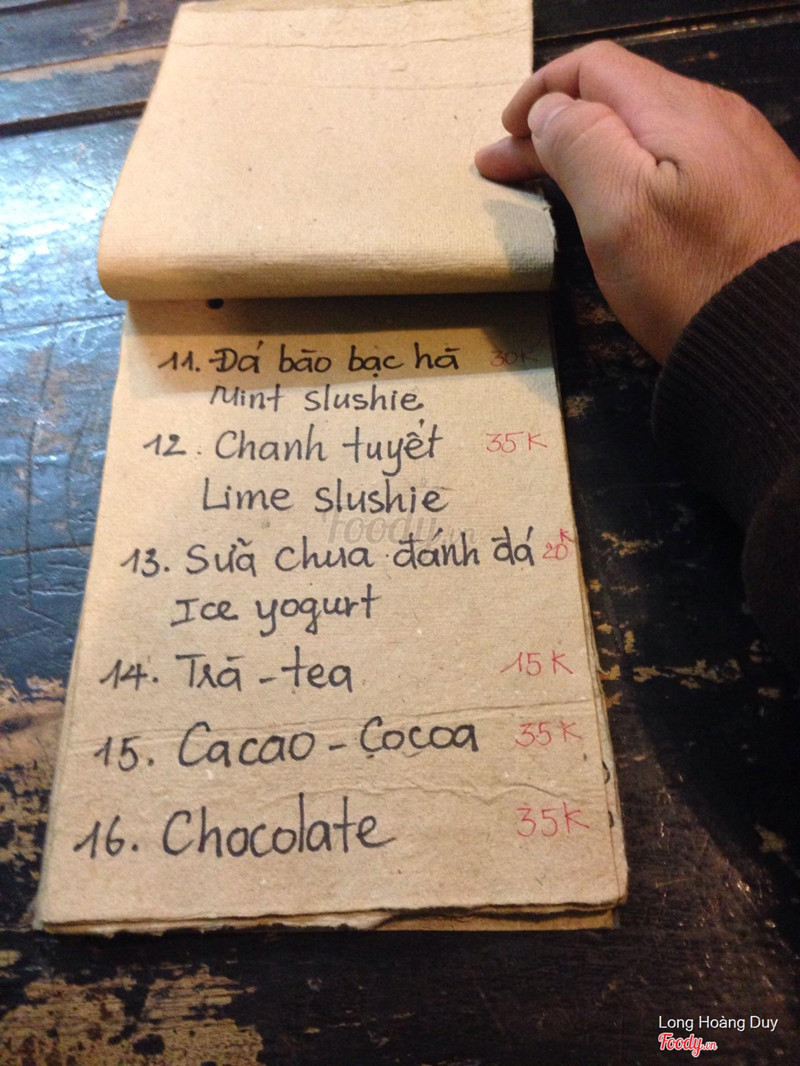 11. Đá bào bạc hà 30K
Mint slushie
12. Chanh tuyết 35K
Lime slushie
13. Sữa chua đánh đá 20K
Ice yogurt
14. Trà - tea 15K
15. Cacao - Cocoa 35K
16. Chocolate 35K
Foody.vn
Long Hoàng Duy
Foody.vn